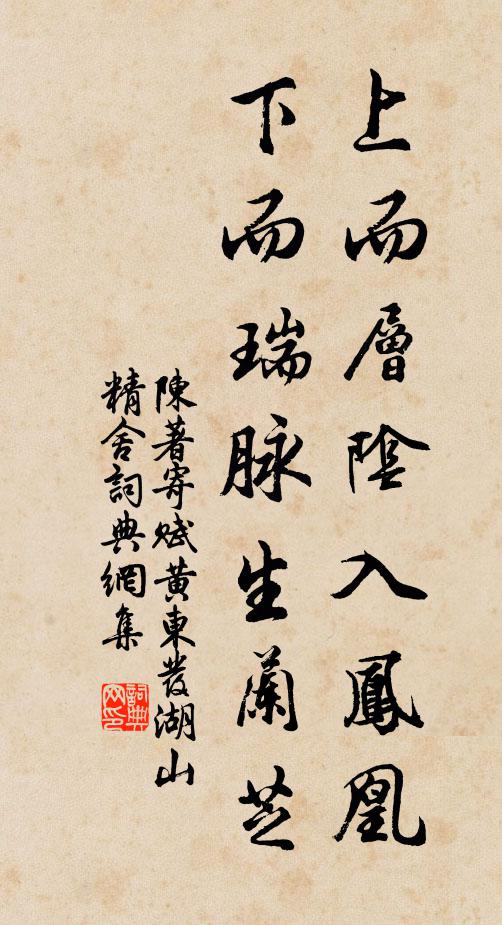 上而層陰入鳳凰
下而瑞脉生蘭芝
陳著寄賦黄東發湖山
精舍詞典網集
詞典网印